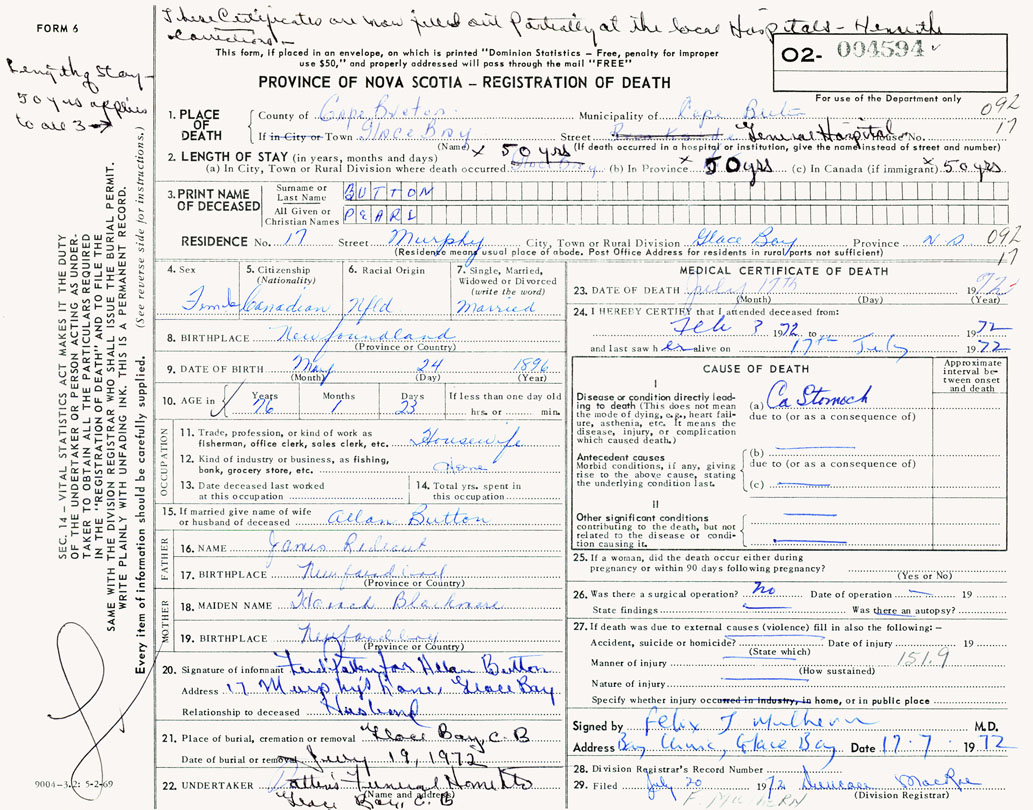 FORM 6
These Certificates are now filled out Partially at the local Hospitals - Henceforth
Corrections -
This form, if placed in an envelope, on which is printed "Dominion Statistics – Free, penalty for improper
use $50," and properly addressed will pass through the mail "FREE"
02- 004594
PROVINCE OF NOVA SCOTIA – REGISTRATION OF DEATH
For use of the Department only
Length of Stay -
50 yrs applies
to all 3 →
1. PLACE OF DEATH
County of Cape Breton Municipality of Cape Breton 092
If in City or Town Glace Bay Street General Hospital House No. 17
(Name) (If death occurred in a hospital or institution, give the name instead of street and number)
2. LENGTH OF STAY (in years, months and days)
(a) In City, Town or Rural Division where death occurred x 50 yrs (b) In Province x 50 yrs (c) In Canada (if immigrant) x 50 yrs
3. PRINT NAME OF DECEASED
Surname or Last Name BUTTON
All Given or Christian Names PEARL
RESIDENCE No. 17 Street Murphy City, Town or Rural Division Glace Bay Province N S 092
(Residence means usual place of abode. Post Office Address for residents in rural parts not sufficient) 17
4. Sex
Female
5. Citizenship
(Nationality)
Canadian
6. Racial Origin
Nfld
7. Single, Married,
Widowed or Divorced
(write the word)
Married
8. BIRTHPLACE Newfoundland
(Province or Country)
9. DATE OF BIRTH May 24 1896
(Month) (Day) (Year)
10. AGE in Years 76 Months 1 Days 23 If less than one day old
hrs. or min.
OCCUPATION
11. Trade, profession, or kind of work as
fisherman, office clerk, sales clerk, etc. Housewife
12. Kind of industry or business, as fishing,
bank, grocery store, etc. Home
13. Date deceased last worked
at this occupation
14. Total yrs. spent in
this occupation
15. If married give name of wife
or husband of deceased Allan Button
FATHER
16. NAME James Rideout
17. BIRTHPLACE Newfoundland
(Province or Country)
MOTHER
18. MAIDEN NAME Blackmore
19. BIRTHPLACE
(Province or Country)
20. Signature of informant for Allan Button
Address 17 Murphy's Lane, Glace Bay
Relationship to deceased Husband
21. Place of burial, cremation or removal Glace Bay, C.B
Date of burial or removal July 19, 1972
22. UNDERTAKER Funeral Home Ltd
(Name and address)
Glace Bay, C.B
9004-3.2: 5-2-69
MEDICAL CERTIFICATE OF DEATH
23. DATE OF DEATH July 17th 1972
(Month) (Day) (Year)
24. I HEREBY CERTIFY that I attended deceased from:
Feb 3 1972 to 1972
and last saw her alive on 17th July 1972
CAUSE OF DEATH
Approximate
interval between
onset
and death
I
Disease or condition directly leading
to death (This does not
mean the mode of dying, e.g., heart failure,
asthenia, etc. It means the
disease, injury, or complication
which caused death.)
(a) Ca Stomach
due to (or as a consequence of)
Antecedent causes
Morbid conditions, if any, giving
rise to the above cause, stating
the underlying condition last.
(b)
due to (or as a consequence of)
(c)
II
Other significant conditions
contributing to the death, but not
related to the disease or condition
causing it.
25. If a woman, did the death occur either during
pregnancy or within 90 days following pregnancy?
(Yes or No)
26. Was there a surgical operation? No Date of operation 19
State findings Was there an autopsy?
27. If death was due to external causes (violence) fill in also the following: –
Accident, suicide or homicide? Date of injury 19
(State which)
Manner of injury 151.9
(How sustained)
Nature of injury
Specify whether injury occurred in industry, in home, or in public place
Signed by Felix J Mulhern M.D.
Address Bay Clinic, Glace Bay Date 17-7 1972
28. Division Registrar's Record Number
29. Filed July 20 1972 Duncan MacRae
(Division Registrar)
F. MULHERN
SEC. 14 – VITAL STATISTICS ACT MAKES IT THE DUTY
OF THE UNDERTAKER OR PERSON ACTING AS UNDERTAKER
TO OBTAIN ALL THE PARTICULARS REQUIRED
IN THE "REGISTRATION OF DEATH" AND TO FILE THE
SAME WITH THE DIVISION REGISTRAR WHO SHALL ISSUE THE BURIAL PERMIT.
WRITE PLAINLY WITH UNFADING INK. THIS IS A PERMANENT RECORD.
Every item of information should be carefully supplied. (See reverse side for instructions.)